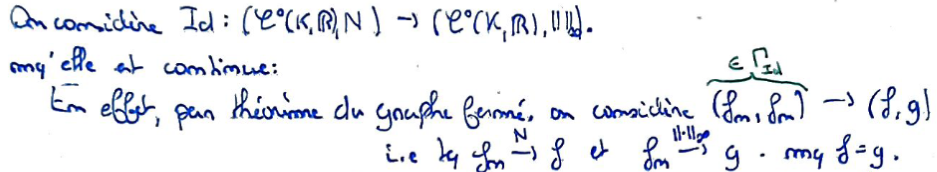 On considère Id : (C°(K,ℝ),N) → (C°(K,ℝ),‖‖∞).
mq' elle est continue :
∈ Γ_Id
En effet, par théorème du graphe fermé, on considère (fₙ, fₙ) → (f, g)
i.e tq fₙ →^N f et fₙ →^‖·‖∞ g . mq f = g .